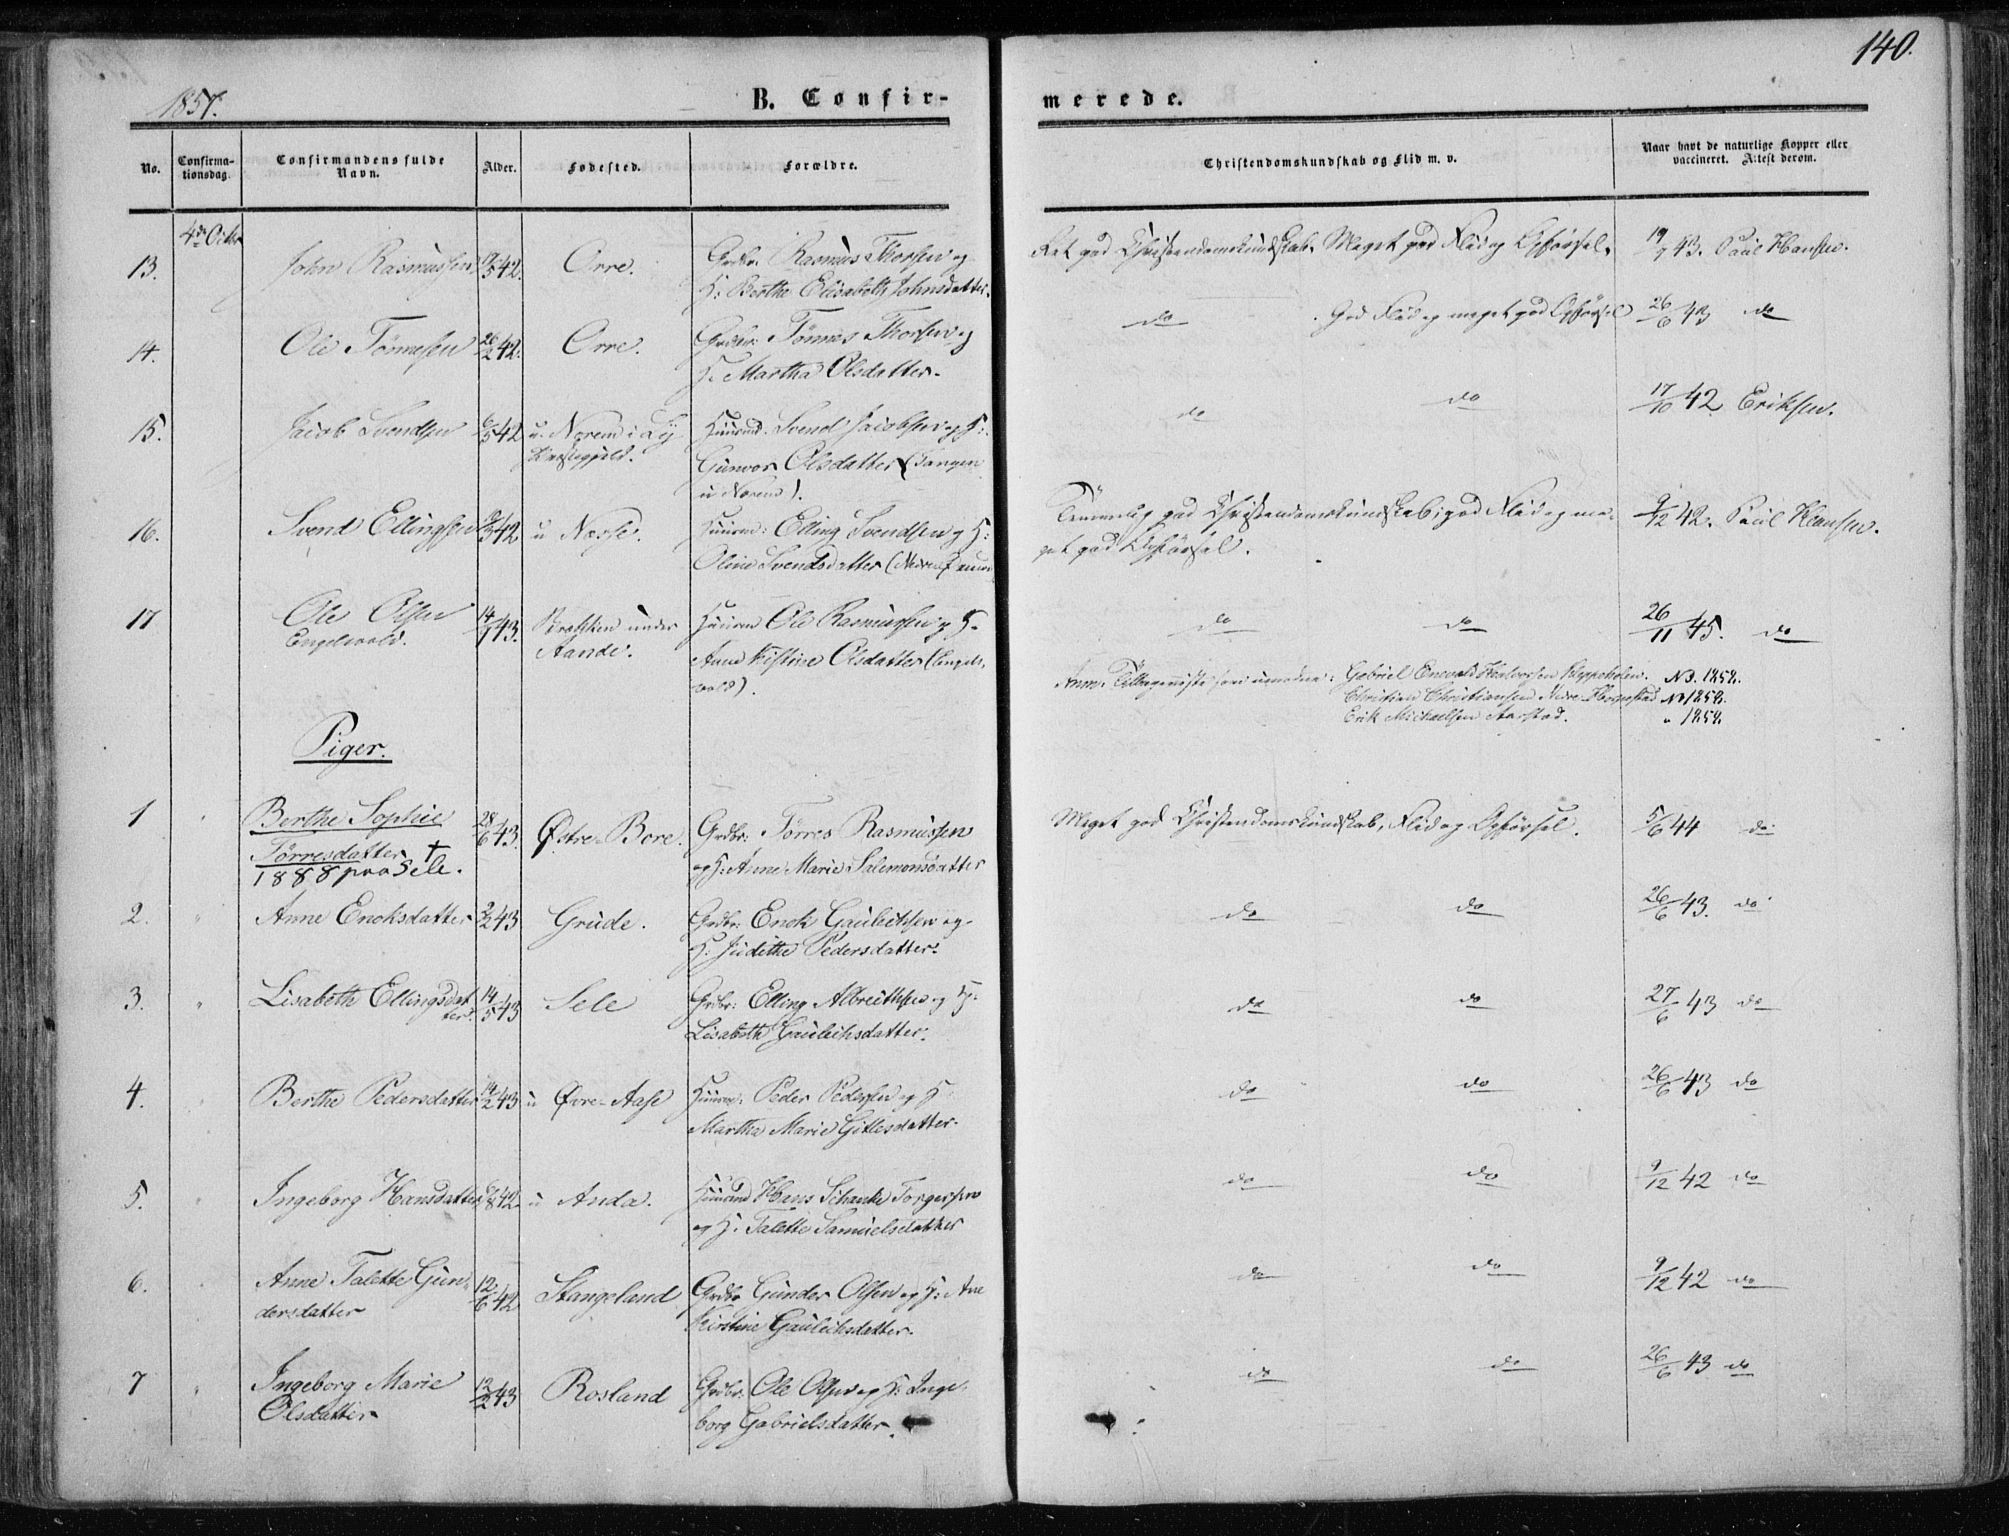 140.
1857.
B. Confir-
merede.
No.
Confirma-
tionsdag.
Confirmandens fulde
Navn.
Alder.
Fødested.
Forældre.
Christendomskundskab og Flid m. v.
Naar havt de naturlige Kopper eller
vaccineret. Attest derom.
4de Octbr
13. John Rasmussen 542. Orre. Grdbr. Rasmus Thorsen og
H: Berthe Elisabeth Johnsdatter.
Ret god Christendomskundskab. Meget god Flid og Opførsel. 19/7 43. Paul Hansen.
14. Ole Tönnesen 26/2 42. Orre. Grdbr. Tönnes Thorsen og
H. Martha Olsdatter.
do . God Flid og meget god Opførsel 26/6 43 do
15. Jacob Svendsen 6/5 42 u. Norem i Ly
Præstegjeld.
Huusmd: Svend Jacobsen og H:
Gunvor Olsdatter (Tangen
u Norem).
do do 17/10 42 Eriksen.
16. Svend Ellingsen 42 u Næsse. Huusm: Elling Svendsen og H:
Oline Svendsdatter
Temmelig god Christendomskundskab; god Flid og me-
get god Opførsel.
9/12 42. Paul Hansen.
17 Ole Olsen
Engelvold.
14/1 43. under
Aande.
Huusm Ole Rasmussen og H.
Anne Kistine Olsdatter (Engels-
vold).
do do 26/11 45. do
Anm. Gabriel Enevald Halvorsen Kleppeholen. N3. 1858.
Christian Christiansen Nedre Haugestad No 1858.
Erik Michaelsen Aarstad. " 1858
Piger.
1 Berthe Sophie
Törresdatter †
1888 paa Sele.
28/6 43. Østre-Bore. Grdbr: Törres Rasmussen
og H: Anne Marie Salemonsdatter
Meget god Christendomskundskab, Flid og Opførsel. 5/6 44 do
2. " Anne Enoksdatter 2/2 43 Grude. Grdbr: Enok Gauteksen og
H: Judithe Pedersdatter.
do do 26/6 43. do
3. " Lisabeth Ellingsdat
ter.
14/5 43 Sele Grdbr: Elling Albreithsen og H:
Lisabeth Gauteksdatter.
do do 27/6 43 do
4. Berthe Pedersdatter 14/2 43 u Øvre-Aase Huusm: Peder Pedersen og H
Martha Marie Gitlesdatter.
do do 26/6 43 do
5. " Ingeborg Hansdatter 6/8 42. u Anda. Huusmd Hans Schanke Torgersen
og H. Talette Samuelsdatter
do do 9/12 42 do
6. Anne Talette Gun-
dersdatter
12/6 42 Stangeland Grdbr Gunder Olsen og H: Ane
Kirstine Gauteksdatter.
do do 9/12 42 do
7 " Ingeborg Marie
Olsdatter
12/2 43 Rosland Grdbr: Ole Olsen og H: Inge-
borg Gabrielsdatter.
do do 26/6 43 do